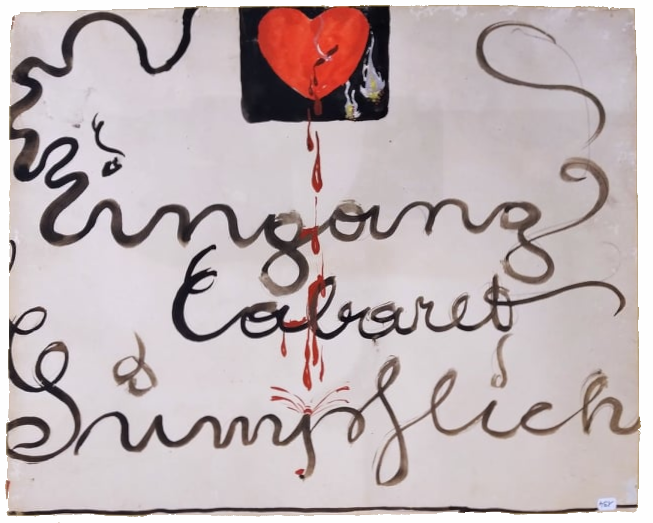 Eingang
Cabaret
Sumpflich